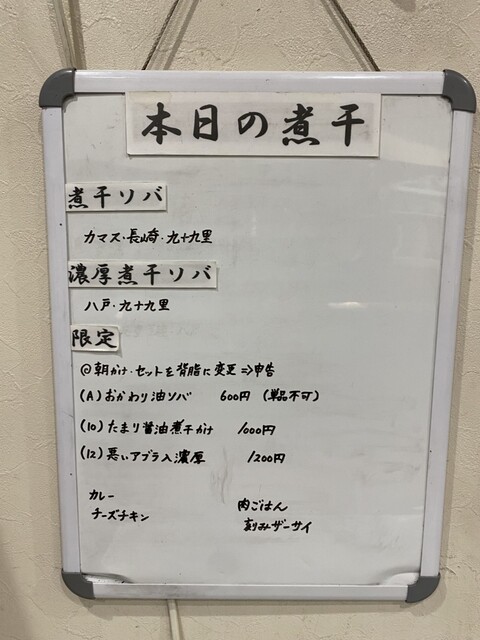 本日の煮干
煮干ソバ
カマス・長崎・九十九里
濃厚煮干ソバ
八戸・九十九里
限定
@朝かけ・セットを背脂に変更⇒申告
(A)おかわり油ソバ 600円 (単品不可)
(10)たまり醤油煮干かけ 1000円
(12)悪いアブラ入濃厚 1200円
カレー
チーズチキン
肉ごはん
刻みザーサイ